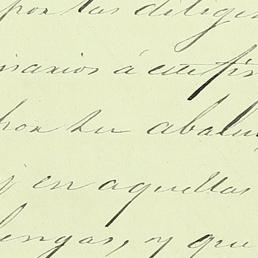 por las dilige
isarios á este fi
por su abalu
y en aquellas
lengas, y que